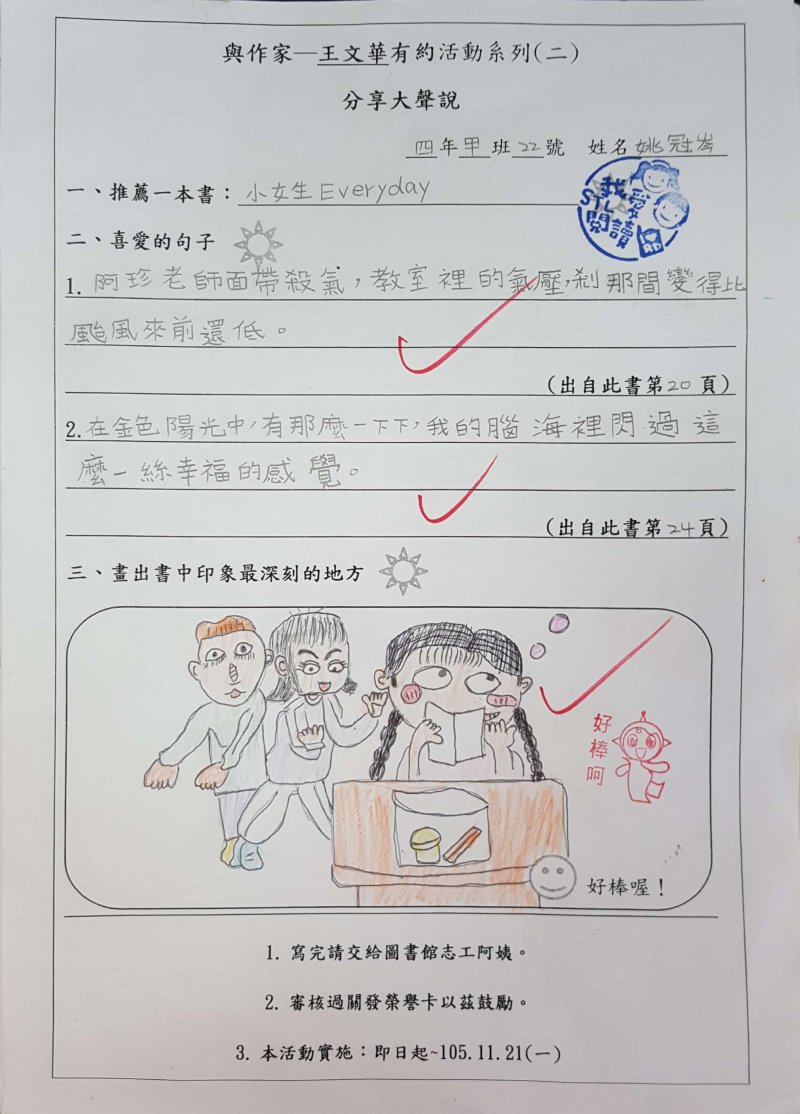 與作家─王文華有約活動系列(二)
分享大聲說
四年甲班22號 姓名姚冠岑
一、推薦一本書：小女生Everyday
我愛
STL
閱讀
二、喜愛的句子
1. 阿珍老師面帶殺氣，教室裡的氣壓，剎那間變得比
颱風來前還低。
(出自此書第20頁)
2. 在金色陽光中，有那麼一下下，我的腦海裡閃過這
麼一絲幸福的感覺。
(出自此書第24頁)
三、畫出書中印象最深刻的地方
好棒呵
好棒喔！
1. 寫完請交給圖書館志工阿姨。
2. 審核過關發榮譽卡以茲鼓勵。
3. 本活動實施：即日起~105.11.21(一)